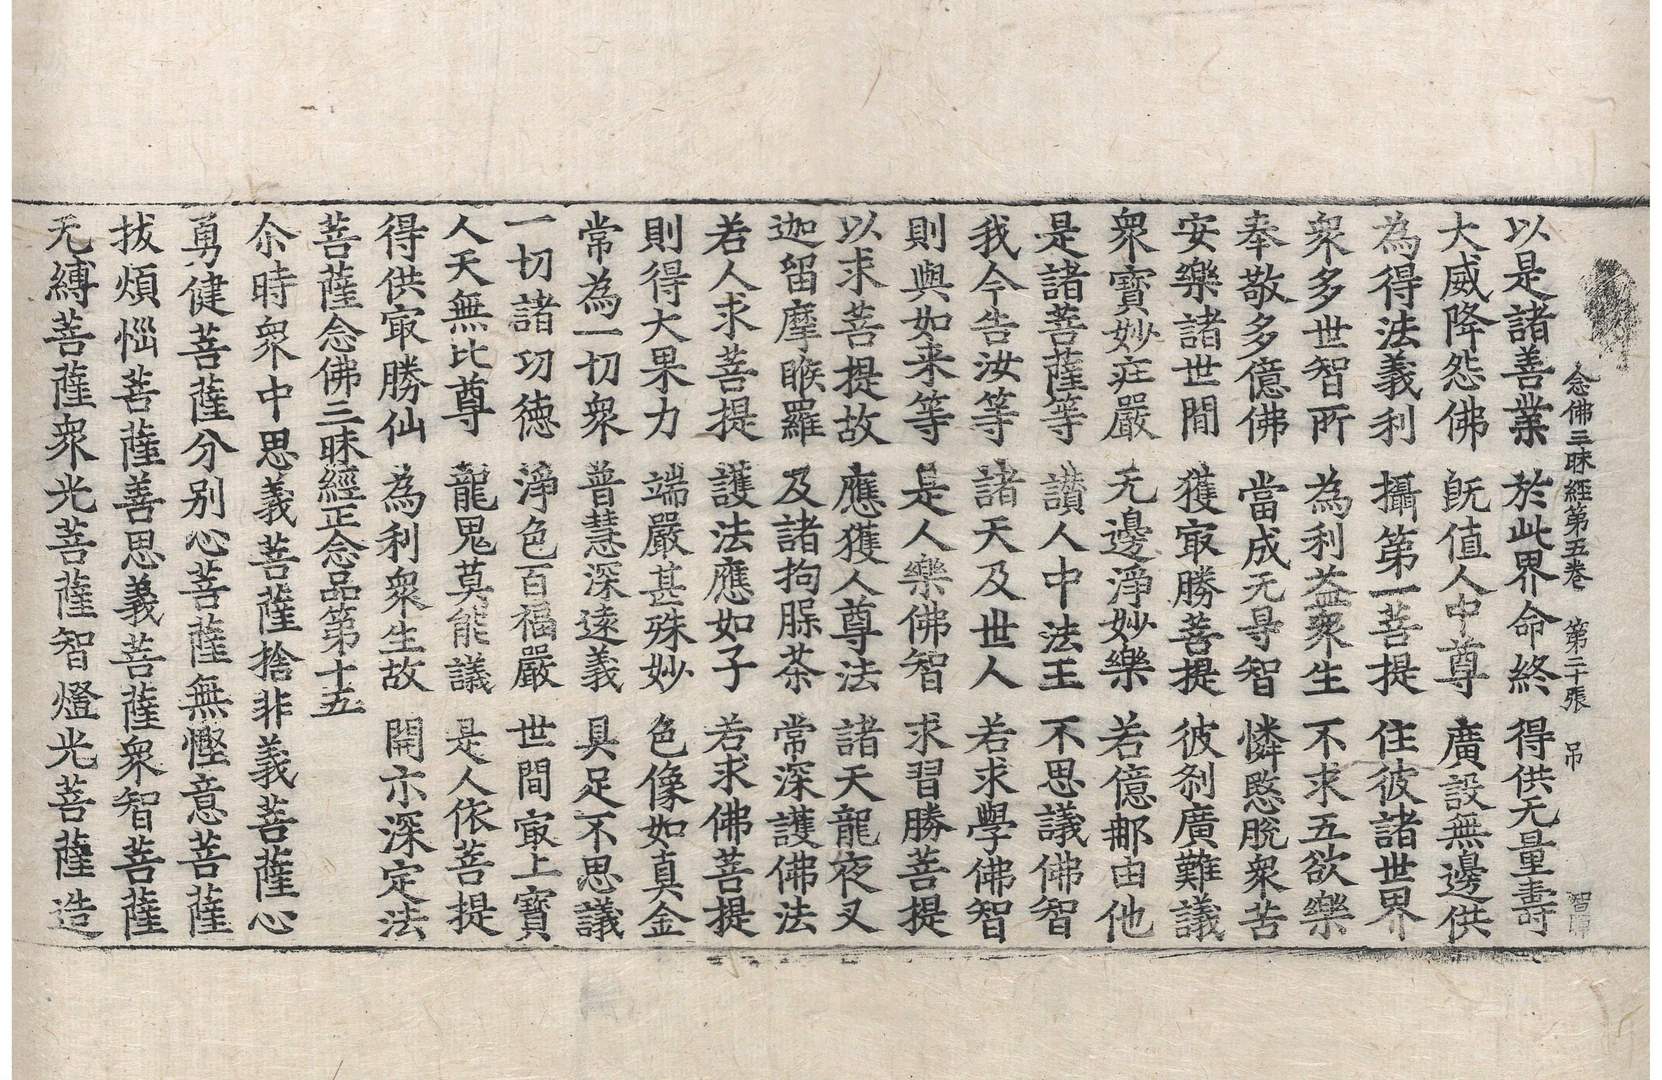 念佛三昧経第五巻 第二十張 弔
以是諸善業 於此界命終 得供无量壽
大威降怨佛 既值人中尊 廣設無邊供
為得法義利 攝第一菩提 住彼諸世界
衆多世智所 為利益衆生 不求五欲樂
奉敬多億佛 當成无㝵智 憐愍脫衆苦
安樂諸世間 獲㝡勝菩提 彼刹廣難議
衆寶妙疰嚴 无邊淨妙樂 若億𨚗由他
是諸菩薩等 讃人中法王 不思議佛智
我今告汝等 諸天及世人 若求學佛智
則與如来等 是人樂佛智 求習勝菩提
以求菩提故 應獲人尊法 諸天龍夜叉
迦留摩睺羅 及諸拘𦝫荼 常深護佛法
若人求菩提 護法應如子 若求佛菩提
則得大果力 端嚴甚殊妙 色像如真金
常為一切衆 普慧深遠義 具足不思議
一切諸功德 淨色百福嚴 世間㝡上寶
人天無比尊 龍鬼莫能議 是人依菩提
得供㝡勝仙 為利衆生故 開示深定法
菩薩念佛三昧經正念品第十五
尒時衆中思義菩薩捨非義菩薩心
勇健菩薩分别心菩薩無慳意菩薩
拔煩惱菩薩善思義菩薩衆智菩薩
无縛菩薩衆光菩薩智燈光菩薩造